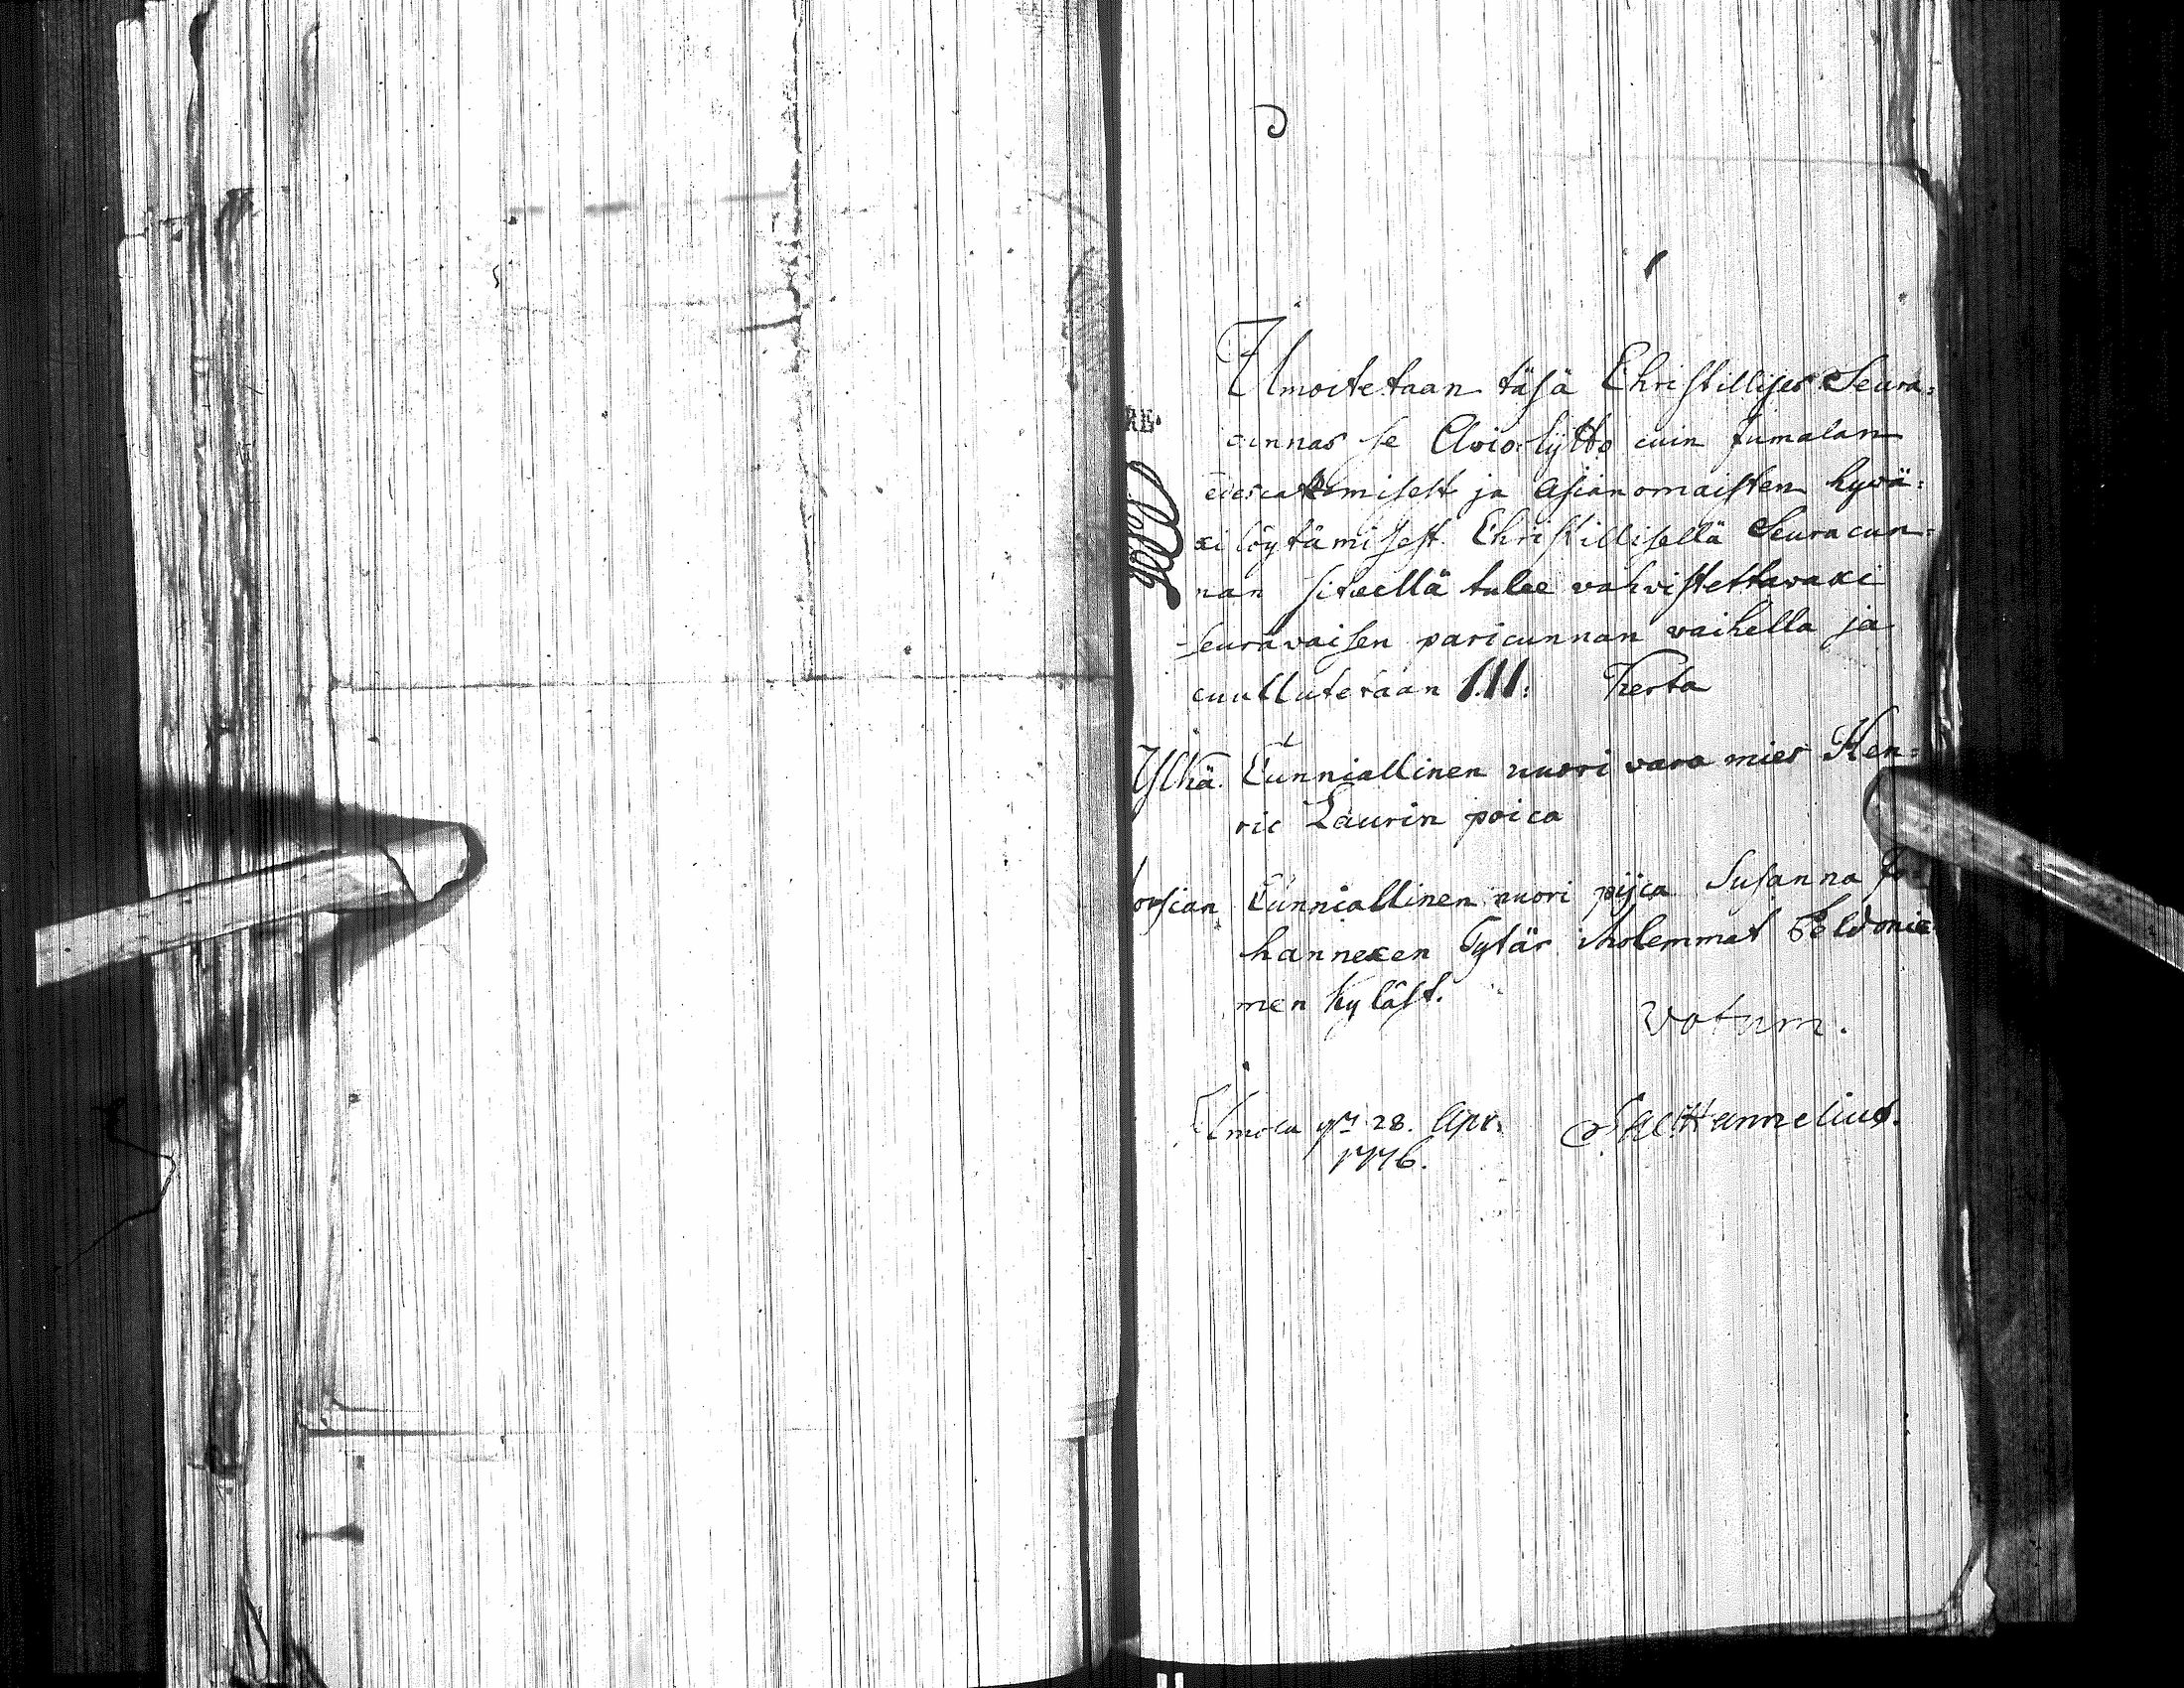 Ilmoitetaan täsä Christillises Seura=
cunnas se Awio-lijtto cuin Jumalan
edescatzomisest ja asianomaisten hywä=
xi löytämisest Christillisellä Seuracun=
nan siteellä tulee wahwistettawaxi
seurawaisen paricunnan waihella ja
cuullutetaan I.II: Kerta
Ylhä. Cunniallinen nuori vara mies Hen=
ric Laurin poica
Cunniallinen nuori pijca Susanna Jo=
hannexen Tytär molemmat Peldonie
men Kyläst.
Votum.
Ilmola 28. Apr.
1776.
Hannelius.